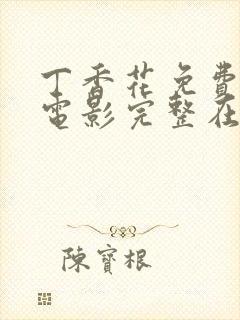 丁香花免費
電影完整在
陳寶根